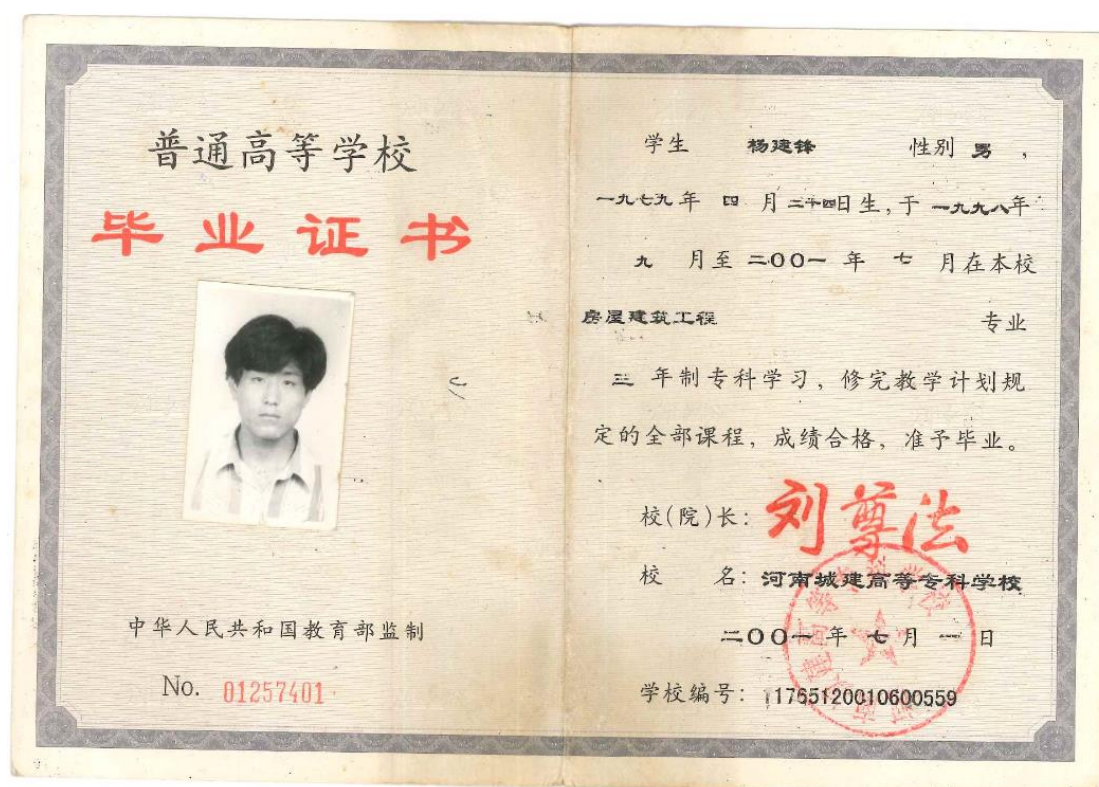 普通高等学校
毕业证书
中华人民共和国教育部监制
No. 01257401
学生 杨建锋 性别 男，
一九七九年 四 月二十四日生，于 一九九八年
九 月至 二00一 年 七 月在本校
房屋建筑工程 专业
三 年制专科学习，修完教学计划规
定的全部课程，成绩合格，准予毕业。
校(院)长：刘尊法
校 名：河南城建高等专科学校
二00一年 七 月 一 日
学校编号：11765120010600559